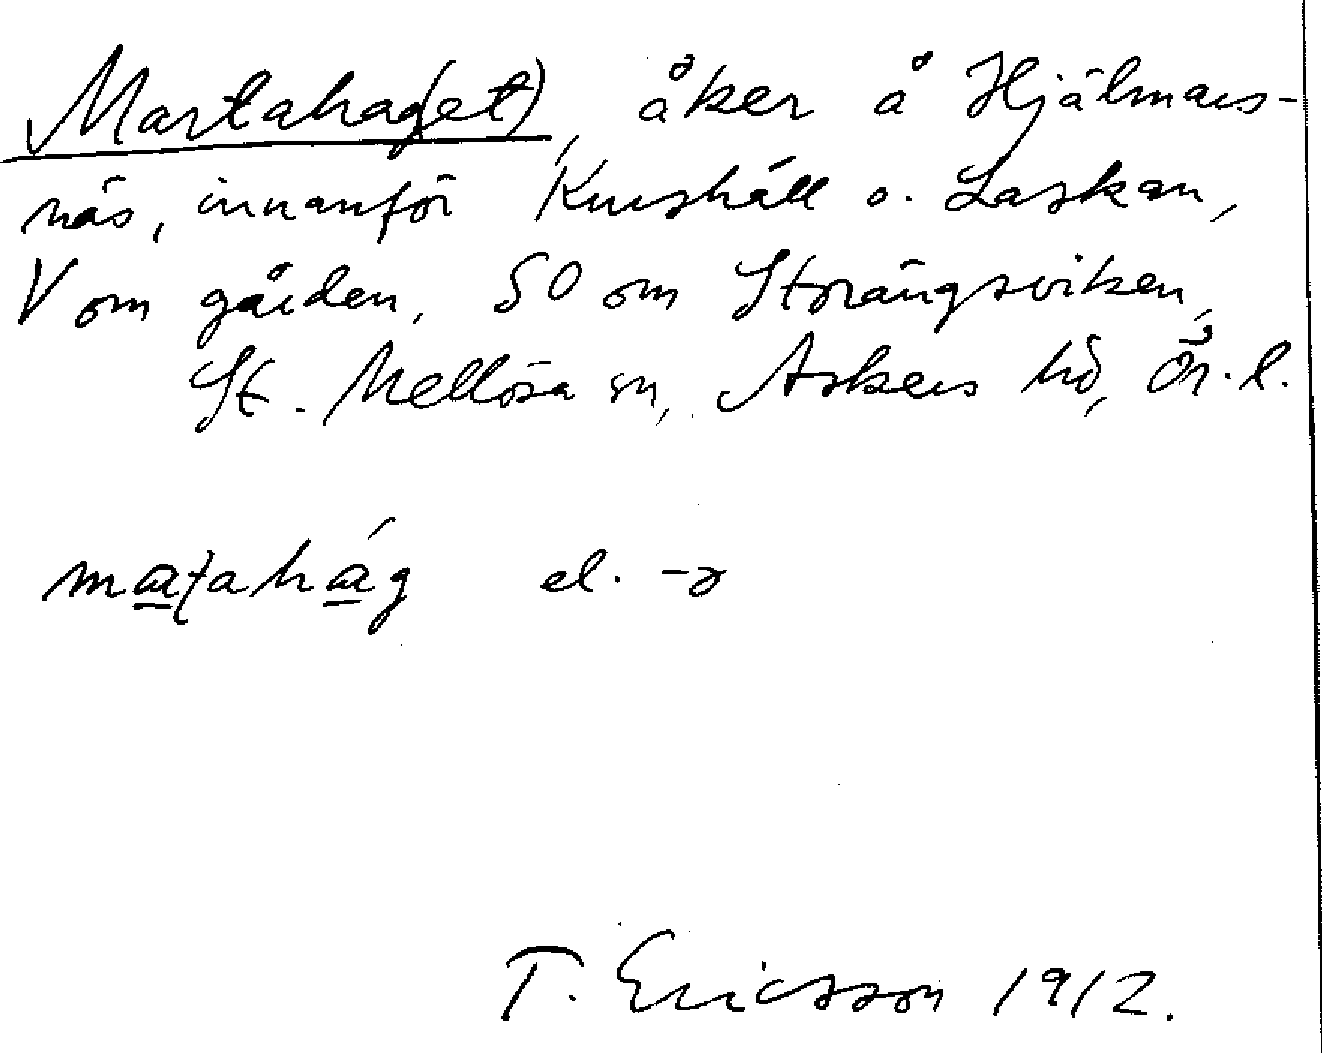 Martahag(et), åker å Hjälmars-
näs, innanför Knishäll o. Laskan,
V om gården, SO om Storängsviken,
St. Mellösa sn, Askers hd, Ör. l.
mat̩ahág el. -ə
T. Ericsson 1912.